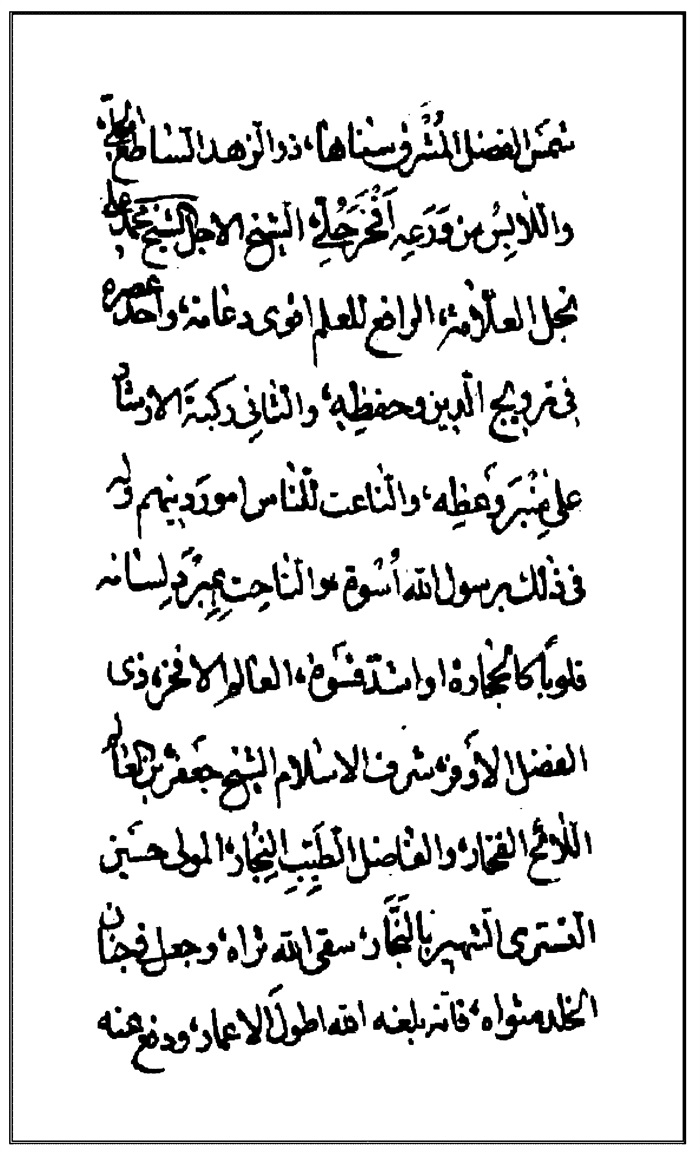 شمس الفضل المُشرق سناها، ذو الزهد الساطع الجلي،
واللابِسُ من وَرَعِهِ أفْخَرَ حُلِيّ، الشيخ الاجل الشيخ محمد علي
نجل العلّامة، الرافع للعلم اقوى دعامة، واحد عصره
في ترويج الدين وحفظِهِ، والثاني رُكبَةَ الارشاد
على مِنْبَرِ وَعظِه، والناعت للناس امور دينهم وله
في ذلك برسول الله أُسْوَة، والناحِت بِمِبْرَدِ لِسانه
قلوباً كالحجارة او اشد قسوة، العالم الافخر، ذي
الفضل الاوفر، شرف الاسلام الشيخ جعفر بن العالم
اللائح الفخار، والفاضل الطَيِّبِ النِجار، المولى حسين
التستري الشهير بالنَجَّار، سقى الله ثراه، وجعل في جنان
الخلد مثواه، فانه بلغه الله اطولَ الاعمار، ودفع عنه